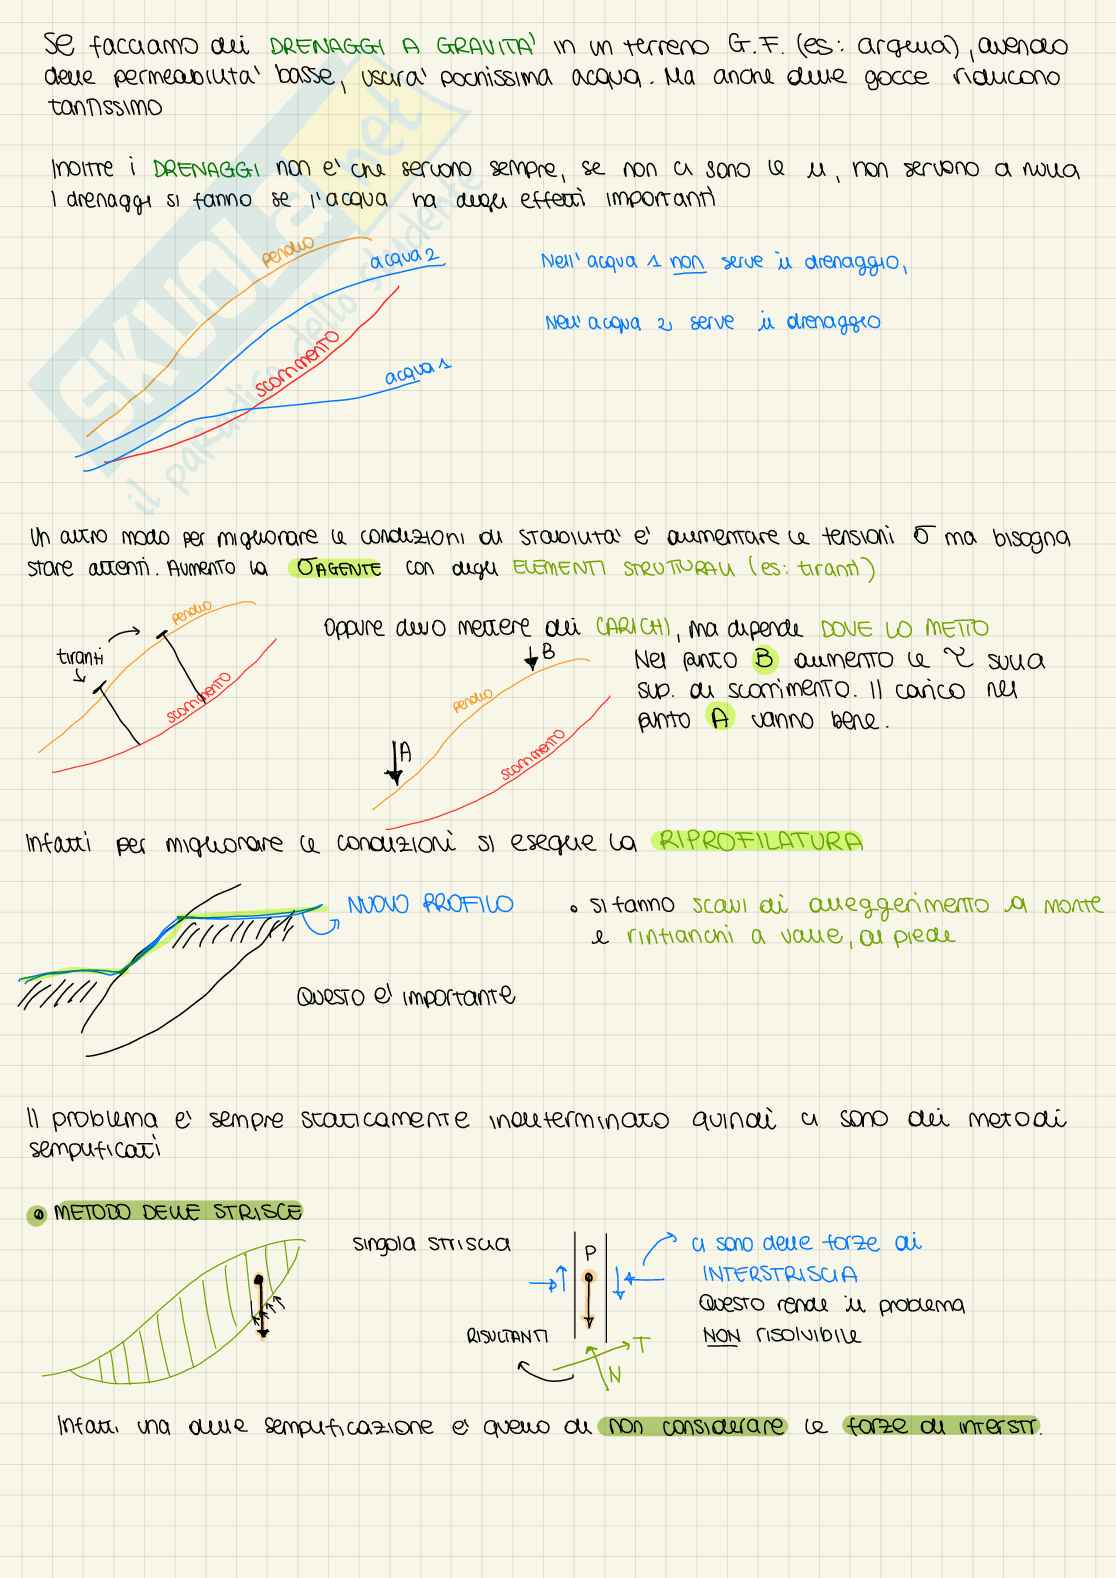 SE facciamo dei DRENAGGI A GRAVITA' in un terreno G.F. (es: argilla), avendo
delle permeabilita' basse, uscira' pochissima acqua. Ma anche delle gocce riducono
tantissimo
Inoltre i DRENAGGI non e' che servono sempre, se non ci sono le u, non servono a nulla
I drenaggi si fanno se l'acqua ha degli effetti importanti
pendio
acqua 2
scorrimento
acqua 1
Nell'acqua 1 non serve il drenaggio,
Nell'acqua 2 serve il drenaggio
Un altro modo per migliorare le condizioni di stabilita' e' aumentare le tensioni σ ma bisogna
stare attenti. Aumento la σAGENTE con degli ELEMENTI STRUTTURALI (es: tiranti)
tiranti
pendio
scorrimento
Oppure devo mettere dei CARICHI, ma dipende DOVE LO METTO
B
A
pendio
scorrimento
Nel punto B aumento le τ sulla
sup. di scorrimento. Il carico nel
punto A vanno bene.
Infatti per migliorare le condizioni si esegue la RIPROFILATURA
NUOVO PROFILO
• si fanno scavi di alleggerimento a monte
e rinfianchi a valle, al piede
Questo e' importante
Il problema e' sempre staticamente indeterminato quindi ci sono dei metodi
semplificati
• METODO DELLE STRISCE
singola striscia
P
RISULTANTI
T
N
ci sono delle forze di
INTERSTRISCIA
Questo rende il problema
NON risolvibile
Infatti una delle semplificazione e' quello di non considerare le forze di interstr.
SKUOLA.net
il paradiso dello studente